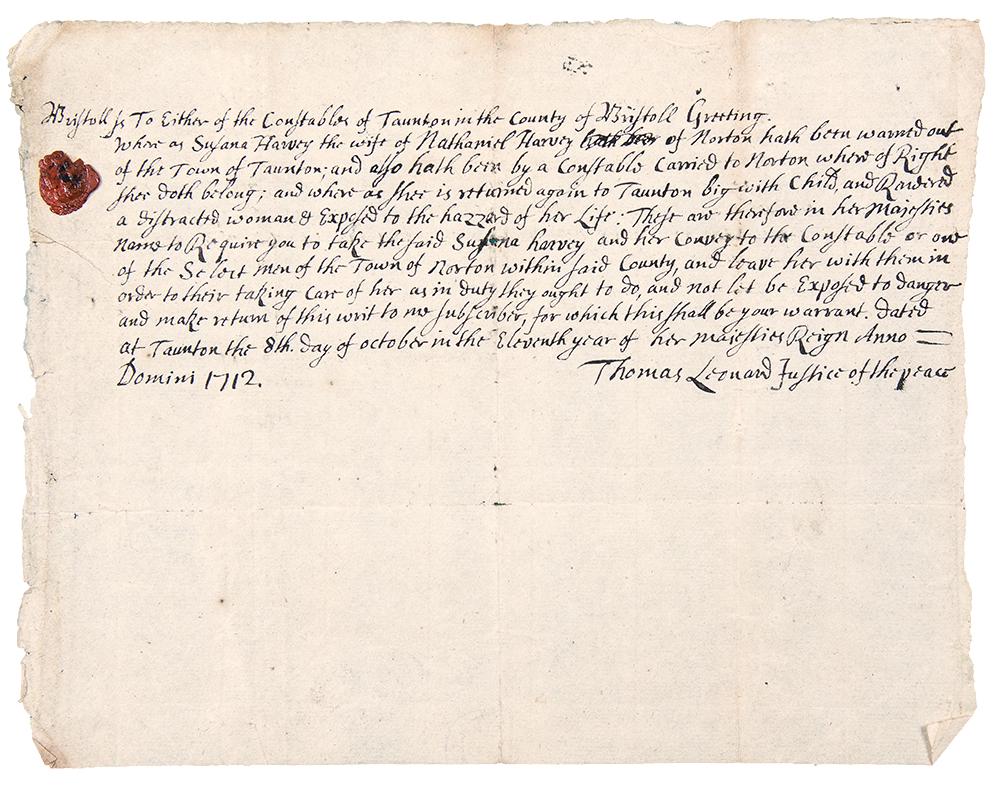 Bristoll ss To Either of the Constables of Taunton in the County of Bristoll Greeting.
Where as Susana Harvey the wife of Nathaniel Harvey hath been of Norton hath been warned out
of the Town of Taunton; and also hath bein by a Constable Carried to Norton where of Right
shee doth belong; and where as shee is returned again to Taunton big with Child, and
a distracted woman & Exposed to the hazzard of her Life. These are therefore in her Majesties
name to Require you to take the said Susana harvey and her Convey to the Constable or one
of the Select men of the Town of Norton within said County, and leave her with them in
order to their taking Care of her as in duty they ought to do, and not let be Exposed to danger
and make return of this writ to me subscriber, for which this shall be your warrant. Dated
at Taunton the 8th. day of october in the Eleventh year of her majesties Reign Anno =
Domini 1712. Thomas Leonard Justice of the peace